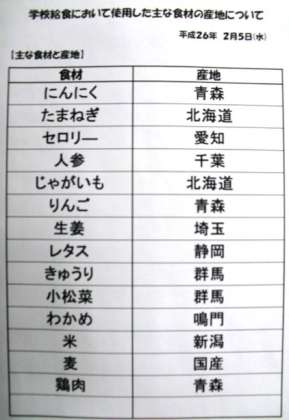 学校給食において使用した主な食材の産地について
平成26年 2月5日(水)
【主な食材と産地】
食材 産地
にんにく 青森
たまねぎ 北海道
セロリ― 愛知
人参 千葉
じゃがいも 北海道
りんご 青森
生姜 埼玉
レタス 静岡
きゅうり 群馬
小松菜 群馬
わかめ 鳴門
米 新潟
麦 国産
鶏肉 青森